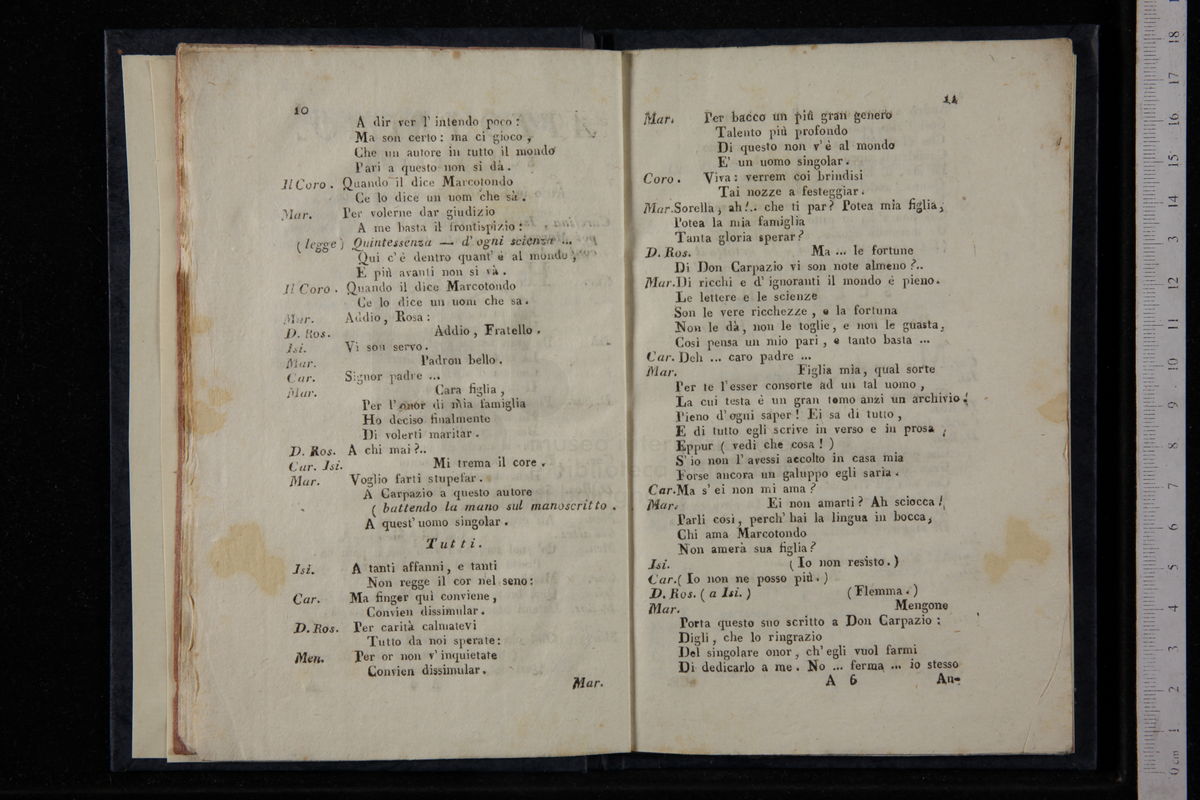 10
A dir ver l' intendo poco :
Ma son certo : ma ci gioco ,
Che un autore in tutto il mondo
Pari a questo non si dà .
Il Coro . Quando il dice Marcotondo
Ce lo dice un uom che sà .
Mar. Per volerne dar giudizio
A me basta il frontispizio :
( legge ) Quintessenza — d' ogni scienza ...
Qui c' è dentro quant' è al mondo ,
E più avanti non si và .
Il Coro . Quando il dice Marcotondo
Ce lo dice un uom che sa .
Mar. Addio , Rosa :
D. Ros. Addio , Fratello .
Isi. Vi son servo .
Mar. Padron bello .
Car. Signor padre ...
Mar. Cara figlia ,
Per l' onor di mia famiglia
Ho deciso finalmente
Di volerti maritar .
D. Ros. A chi mai ?..
Car. Isi. Mi trema il core .
Mar. Voglio farti stupefar .
A Carpazio a questo autore
( battendo la mano sul manoscritto .
A quest' uomo singolar .
Tutti.
Isi. A tanti affanni , e tanti
Non regge il cor nel seno :
Car. Ma finger quì conviene ,
Convien dissimular .
D. Ros. Per carità calmatevi
Tutto da noi sperate :
Men. Per or non v' inquietate
Convien dissimular .
Mar.
11
Mar. Per bacco un più gran genero
Talento più profondo
Di questo non v' è al mondo
E' un uomo singolar .
Coro . Viva : verrem coi brindisi
Tai nozze a festeggiar .
Mar. Sorella , ah !.. che ti par ? Potea mia figlia ,
Potea la mia famiglia
Tanta gloria sperar ?
D. Ros. Ma ... le fortune
Di Don Carpazio vi son note almeno ?..
Mar. Di ricchi e d' ignoranti il mondo è pieno .
Le lettere e le scienze
Son le vere ricchezze , e la fortuna
Non le dà , non le toglie , e non le guasta .
Così pensa un mio pari , e tanto basta ...
Car. Deh ... caro padre ...
Mar. Figlia mia , qual sorte
Per te l' esser consorte ad un tal uomo ,
La cui testa è un gran tomo anzi un archivio !
Pieno d' ogni saper ! Ei sa di tutto ,
E di tutto egli scrive in verso e in prosa ;
Eppur ( vedi che cosa ! )
S' io non l' avessi accolto in casa mia
Forse ancora un galuppo egli saria .
Car. Ma s' ei non mi ama ?
Mar. Ei non amarti ? Ah sciocca !
Parli così , perch' hai la lingua in bocca ,
Chi ama Marcotondo
Non amerà sua figlia ?
Isi. ( Io non resisto . )
Car. ( Io non ne posso più . )
D. Ros. ( a Isi. ) ( Flemma . )
Mar. Mengone
Porta questo suo scritto a Don Carpazio :
Digli , che lo ringrazio
Del singolare onor , ch' egli vuol farmi
Di dedicarlo a me . No ... ferma ... io stesso
A 6 An-
0 cm 1 2 3 4 5 6 7 8 9 10 11 12 13 14 15 16 17 18